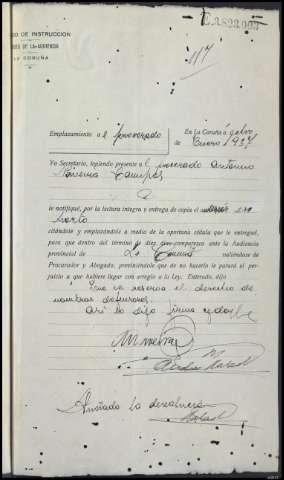 DO DE INSTRUCCION
DE LA AUDIENCIA
CORUÑA
117
Emplazamiento a l procesado
En La Coruña á catorce
de Enero 1937
Yo Secretario, teniendo presente a l procesado Antonio
Campos
le notifiqué, por la lectura íntegra y entrega de copia el
citándole y emplazándole a medio de la oportuna cédula que le entregué,
para que dentro del término de diez días comparezca ante la Audiencia
provincial de La Coruña valiéndose de
Procurador y Abogado, previniéndole que de no hacerlo le parará el per-
juicio a que hubiere lugar con arreglo a la Ley. Enterado, dijo
que se reserva el derecho de
nombrar defensores.
Así lo dijo firma y doy fe